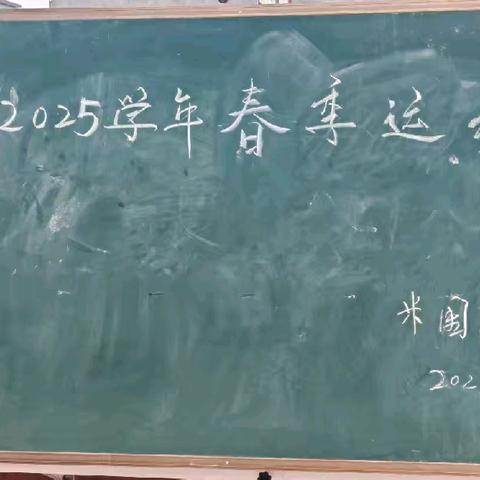 2025学年春季运
米囤
202